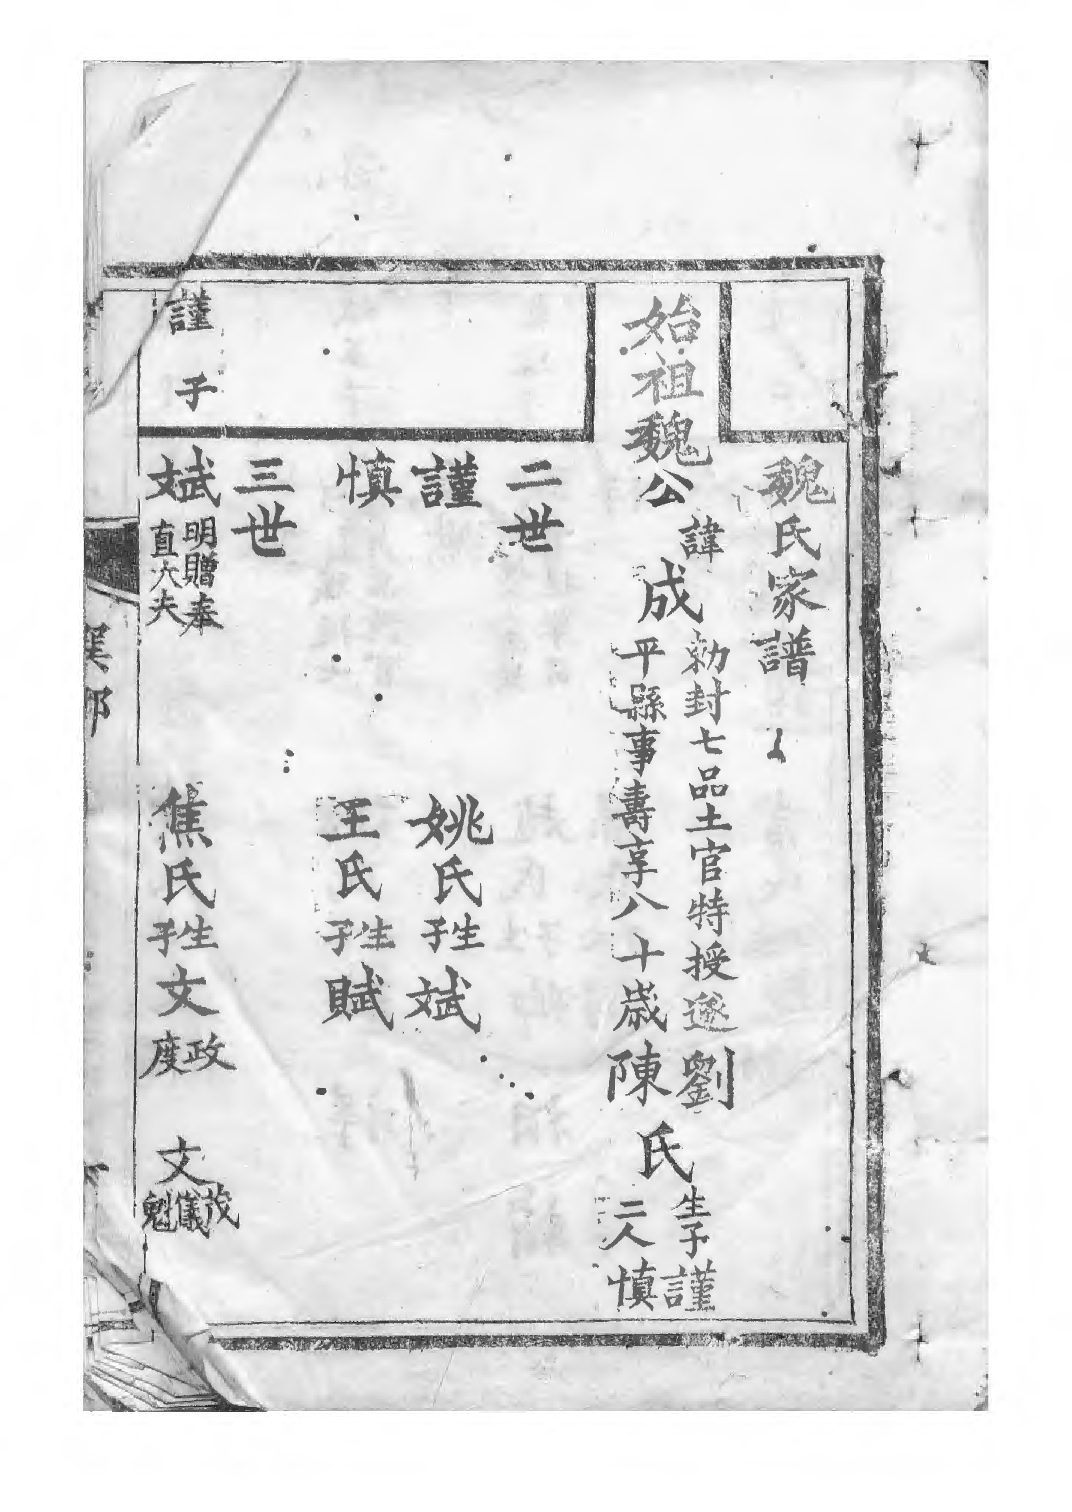 魏氏家譜
始祖魏公諱成勅封七品土官特授遂平縣事壽享八十歲劉陳氏生子二人謹慎
二世
謹 姚氏生子斌
慎 王氏生子賦
三世
謹子
斌 明贈奉直大夫 焦氏生子文政度 文茂儀魁